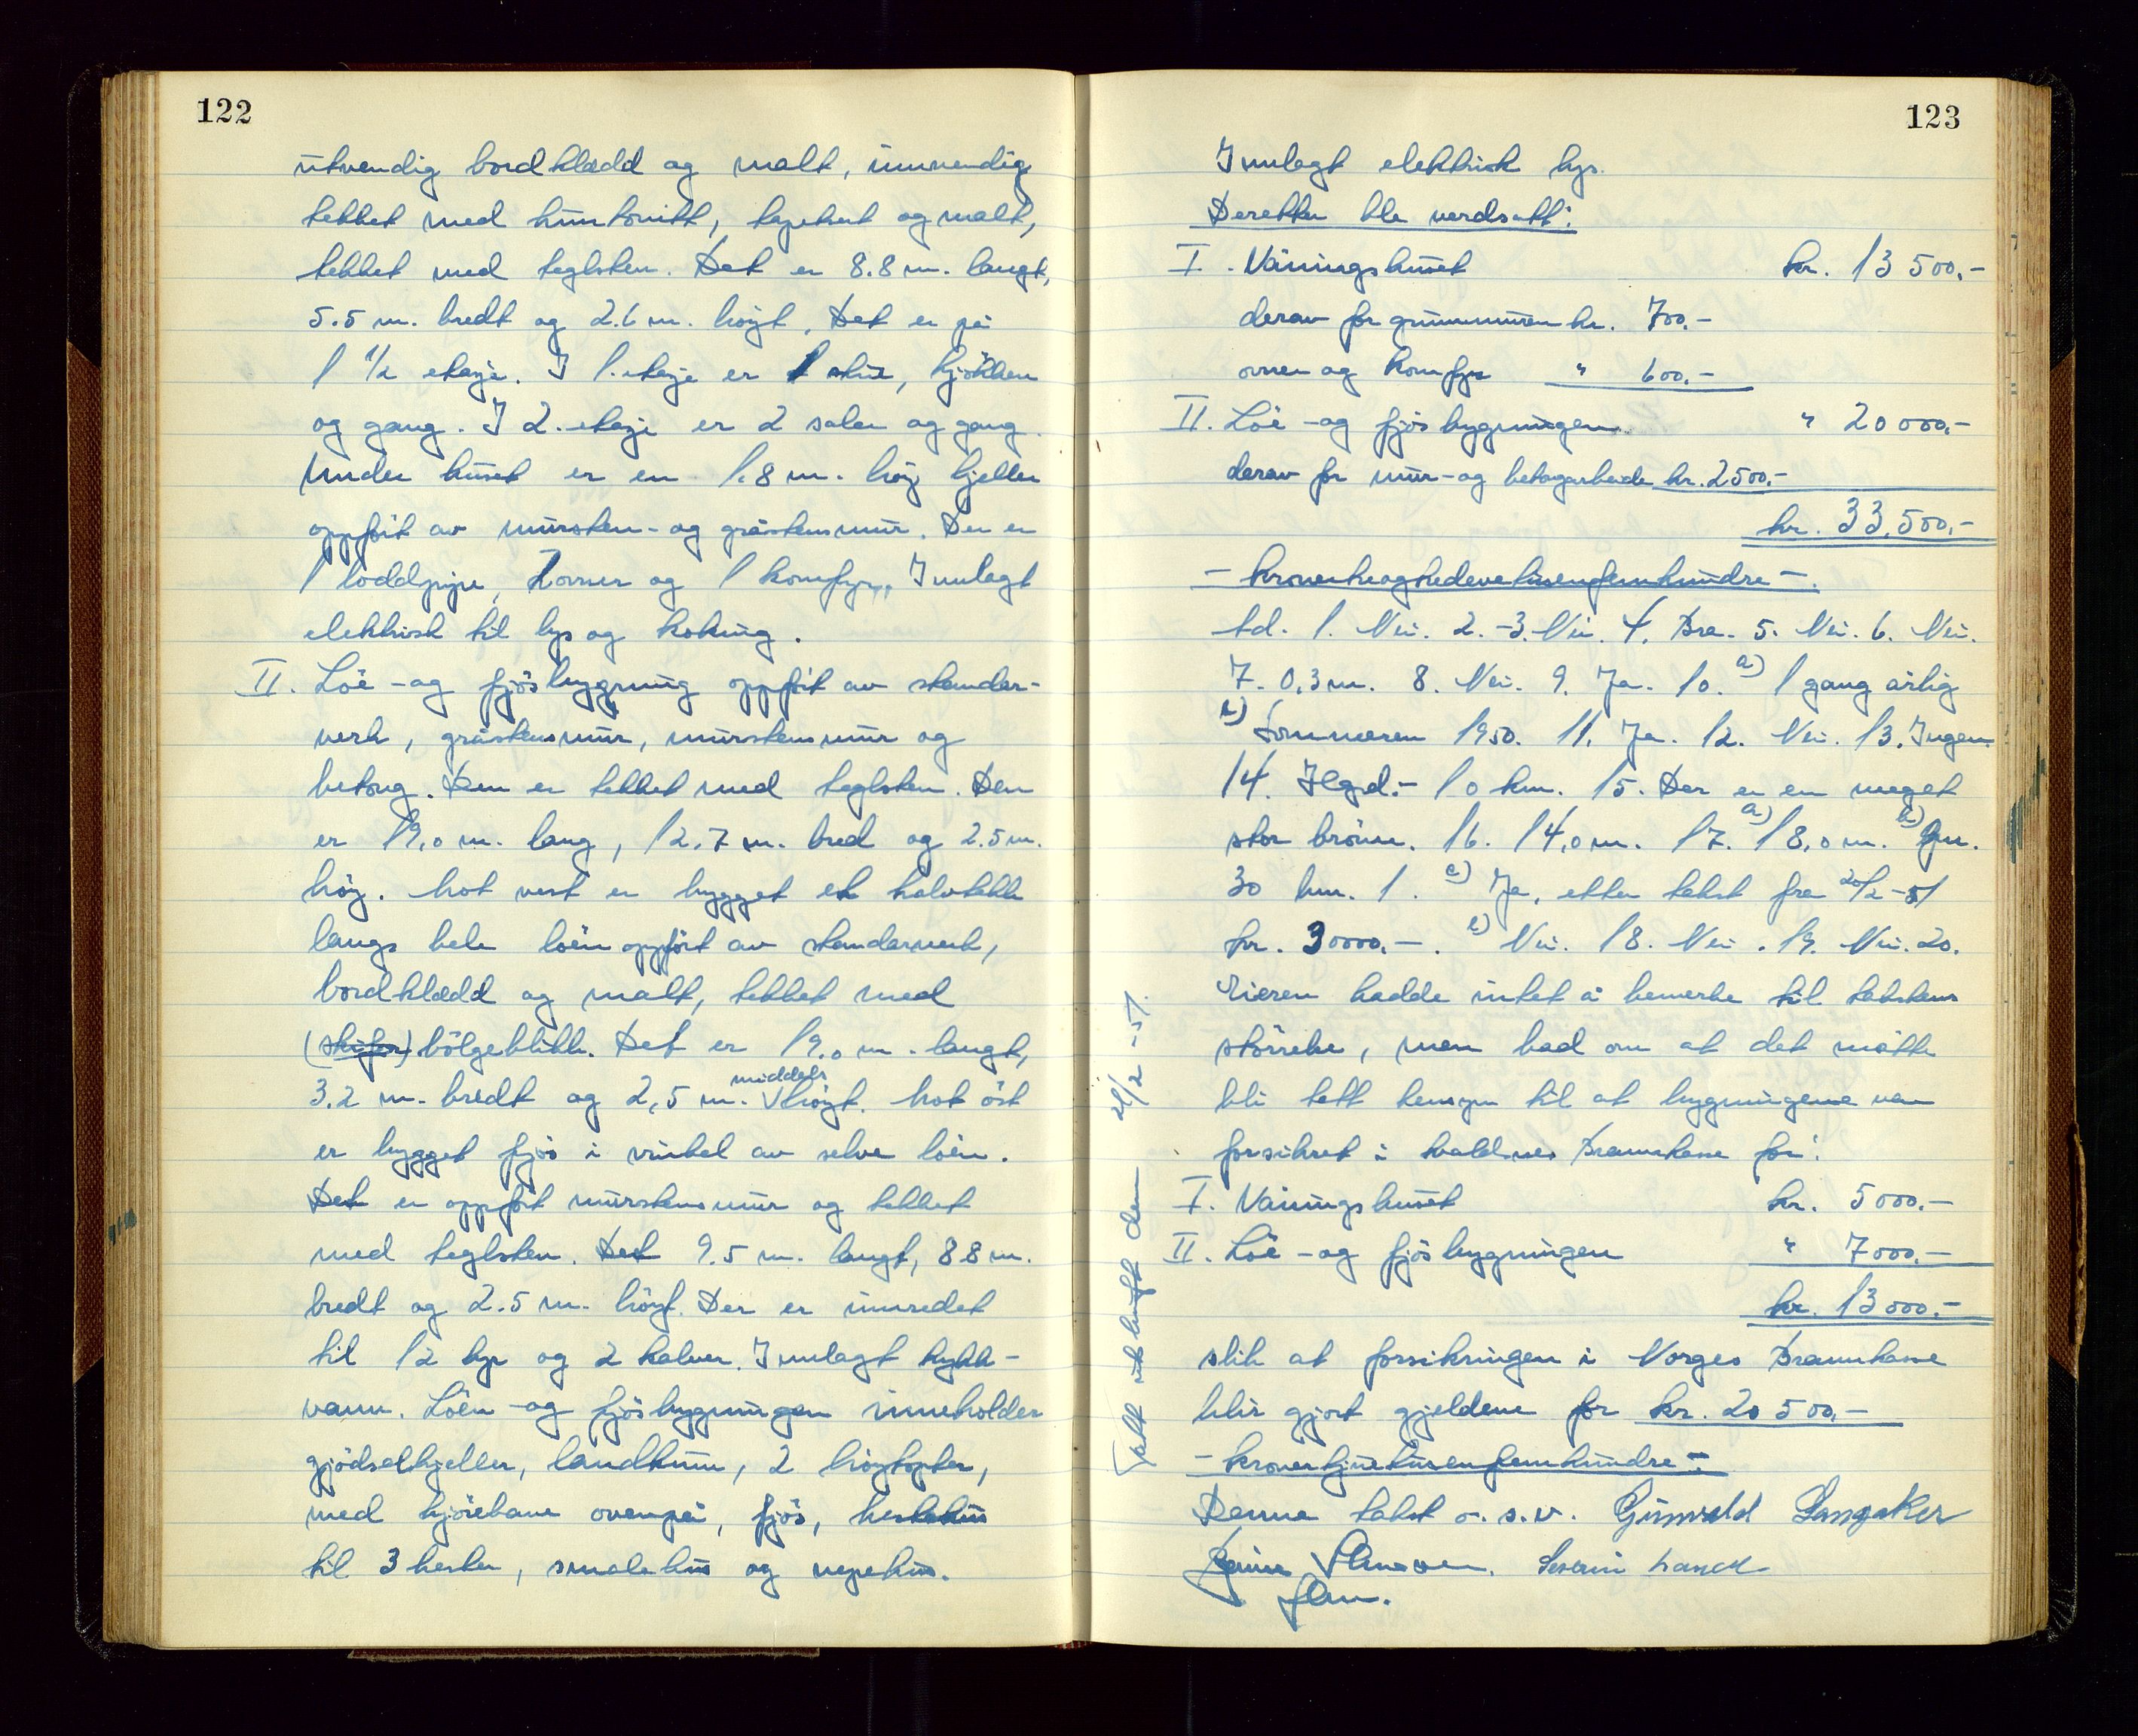 122
utvendig bordklædd og malt, innvendig
tekket med huntonitt, tapetsert og malt,
tekket med teglsten. Det er 8.8 m. langt,
5.5 m. bredt og 2.6 m. höyt. Det er på
1 1/2 etasje. I 1. etasje er 1 stue, kjökken
og gang. I 2. etasje er 2 saler og gang.
Under huset er en 1.8 m. höy kjeller
oppfört av mursten- og gråstensmur. Der er
1 loddpipe, 2 ovner og 1 komfyr. Innlagt
elektrisk til lys og koking.
II. Löe -og fjösbygning oppfört av stender-
verk, gråstensmur, murstensmur og
betong. Den er tekket med teglsten. Den
er 19,0 m. lang, 12.7 m. bred og 2.5 m.
höy. Mot vest er bygget et halvtekk
langs hele löen oppfört av stenderverk,
bordklædd og malt, tekket med
(skifer) bölgeblikk. Det er 19.0 m. langt,
3.2 m. bredt og 2,5 m. middels höyt. Mot öst
er bygget fjös i vinkel av selve löen.
Det er oppfört murstensmur og tekket
med teglsten. Det 9.5 m. langt, 8 8 m.
bredt og 2.5 m. höyt. Der er innredet
til 12 kyr og 2 kalver. Innlagt trykk-
vann. Löen -og fjösbygningen inneholder
gjödselkjeller, landkum, 2 höytopter,
med kjörebane ovenpå, fjös, hestehus
til 3 hester, smalehus og nepehus.
123
Innlagt elektrisk lys.
Deretter ble verdsatt:
I. Våningshuset kr. 13 500.-
derav for grunnmuren kr. 700.-
ovner og komfyr " 600.-
II. Löe -og fjösbygningen " 20 000.-
derav for mur-og betogarbeide kr. 2500.-
kr. 33.500.-
- kronertreogtredevetusenfemhundre -.
td. 1. Nei. 2. -3. Nei. 4. Bra. 5. Nei. 6. Nei.
7. 0,3 m. 8. Nei. 9. Ja. 10. a) 1 gang årlig
b) Sommeren 1950. 11. Ja. 12. Nei. 13. Ingen.
14. Hgsd.- 10 km. 15. Der er en meget
stor brönn. 16. 14,0 m. 17. a) 18,0 m. b)
30 km. 1. a) Ja, etter takst fra 20/2 -51
kr. 30000.-. b) Nei. 18. Nei. 19. Nei. 20.
Eieren hadde intet å bemerke til takstens
störrelse, men bad om at det måtte
bli tatt hensyn til at bygningene var
forsikret i Avaldsnes Brannkasse for:
I. Våningshuset kr. 5000.-
II. Löe -og fjösbygningen " 7000.-
kr. 13000.-
slik at forsikringen i Norges Brannkasse
blir gjort gjeldene for kr. 20 500.-
- kronertjuetusenfemhundre -
Denne takst o. s. v. Gunvald Langaker
Severin
Takst utskrift den 21/2 -51.